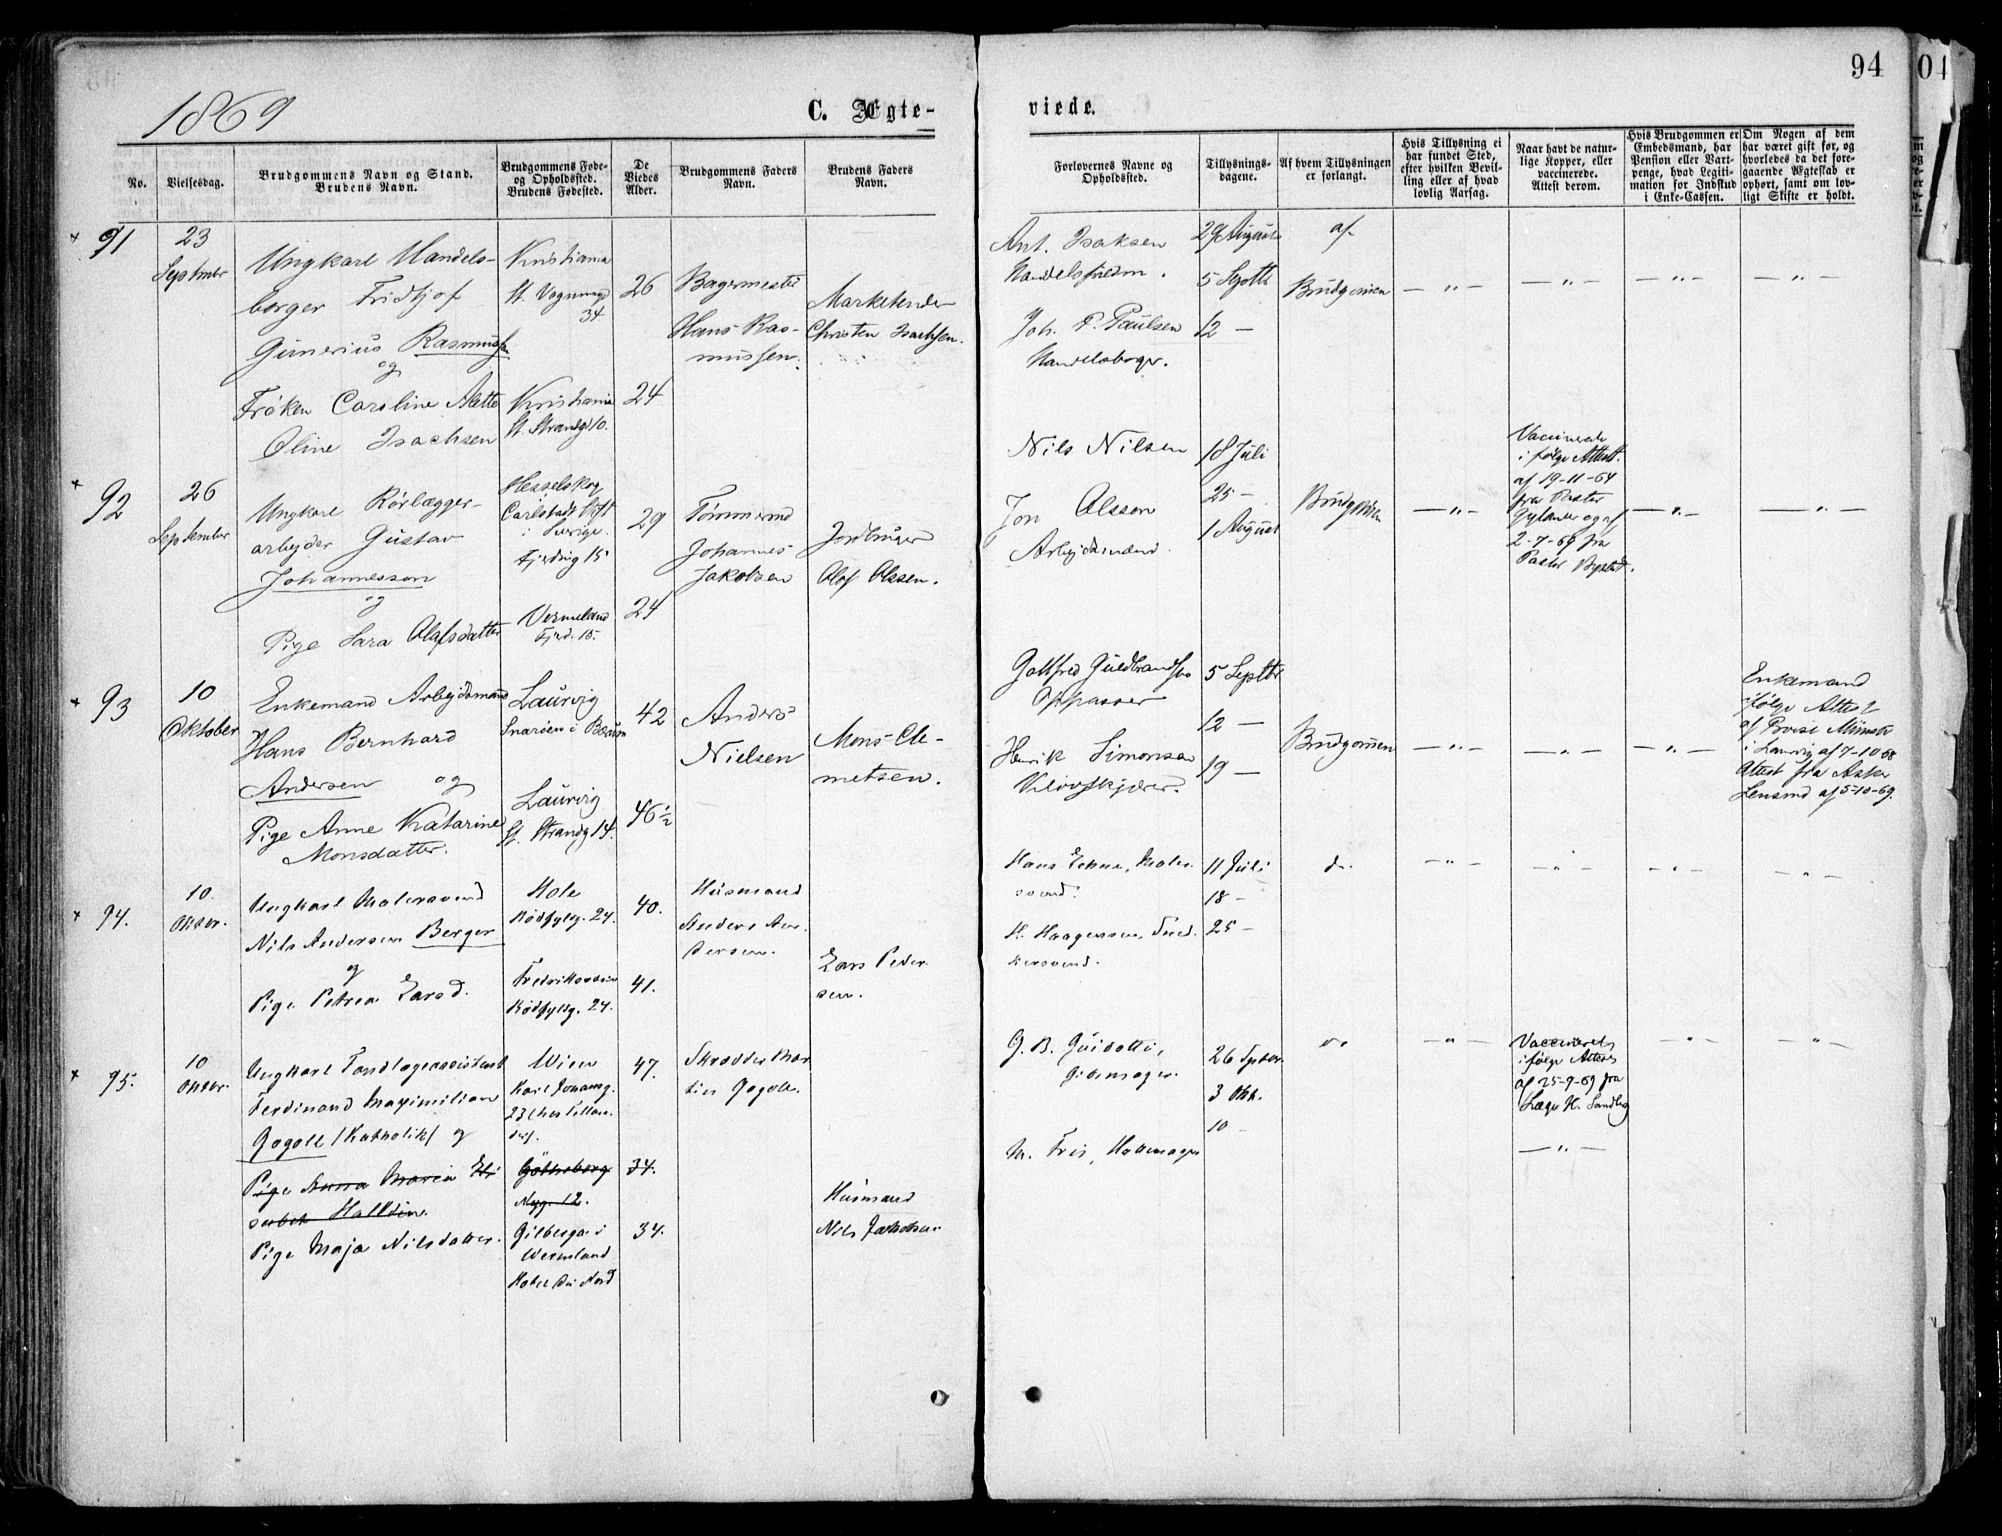 94
1869
C. Ægte-
viede.
No.
Vielsesdag.
Brudgommens Navn og Stand.
Brudens Navn.
Brudgommens Føde-
og Opholdssted.
Brudens Fødested.
De
Viedes
Alder.
Brudgommens Faders
Navn.
Brudens Faders
Navn.
Forlovernes Navne og
Opholdssted.
Tillysnings-
dagene.
Af hvem Tillysningen
er forlangt.
Hvis Tillysning ei
har fundet Sted,
efter hvilken Bevil-
ling eller af hvad
lovlig Aarsag.
Naar havt de natur-
lige Kopper, eller
vaccinerede.
Attest derom.
Hvis Brudgommen er
Embedsmand, har
Pension eller Vart-
penge, hvad Legiti-
mation for Indskud
i Enke-Cassen.
Om Nogen af dem
har været gift før, og
hvorledes da det fore-
gaaende Ægteskab er
ophørt, samt om lov-
ligt Skifte er holdt.
91
23
September
Ungkarl Handels-
borger Fridtjof
Gunerius Rasmussen
og
Frøken Caroline Alette
Oline Isachsen
Kristiania
St. Vognmgd
34
Kristiania
St. Strandgd 10.
26
24
Bagermester
Hans Ras-
mussen.
Marketender
Christen Isachsen.
Ant. Isaksen
Handelsfuldm.
Joh. P. Paulsen
Handelsborger.
29 August
5 Septb
12 —
af
Brudgommen
— " —
— " —
— " —
— " —
92
26
September
Ungkarl Rørlægger-
arbejder Gustav
Johannesson
og
Pige Sara Olafsdatter
Hesselskog
Carlstadt Stift
i Sverige.
Fjerding 15
Vermeland
Fjerd. 15.
29
24
Tømmermd
Johannes
Jakobsen
Jordbruger
Olof Olssen.
Nils Nilsen
Jon Olsson
Arbejdsmænd.
18 Juli
25 —
1 August
Brudgommen
— " —
Vaccinerede
i følge Attest
af 19-11-64
fra Pastor
Gylander og af
2-7-69 fra
Pastor Bystrøm.
— " —
— " —
93
10
Oktober
Enkemand Arbejdsmand
Hans Bernhard
Andersen og
Pige Anne Katarine
Monsdatter.
Laurvig
Snarøen i Bærum
Laurvig
St. Strandg 14.
42
46½
Anders
Nielsen
Mons Cle-
metsen.
Gottfred Guldbrandsen
Oppasser
Henrik Simonsen
5 Septbr
12 —
19 —
Brudgommen
— " —
— " —
— " —
Enkemand
ifølge Attest
af
i Laurvig af 7-10-68
Attest fra Asker
Lensmd af 5-10-69.
94.
10.
Oktbr.
Ungkarl Malersvend
Nils Andersen Berger
og
Pige Petrea Larsd.
Hole
Rødfyldg. 24.
Fredrikshald
Rødfyldg. 24.
40.
41.
Husmand
Anders An-
dersen.
Lars Peder
sen.
Hans Maler-
svend.
H. Haagensen, Sned-
kersvend.
11 Juli
18 —
25 —
do.
— " —
— " —
— " —
— " —
95.
10
Oktbr.
Ungkarl Tandlægeassistent
Ferdinand Maximilian
Gogoll /Katholik/ og
Pige Anna Maria Eli-
sabet Halldin.
Pige Maja Nilsdatter.
Wien
Karl Johansg.
23
Götheborg
Nyg. 12.
Gilberga i
Wermland
Hotel du Nord
47.
34.
34.
Skrædder Mar-
tin Gogoll.
Husmand
Nils Jakobsen
G. B. Guidotti,
Gibsmager.
M. Friis, Hattemager
26 Septbr.
3 Okt.
10 —
do
"
Vaccineret
ifølge Attest
af 25-9-69 fra
Læge H. Sandberg
— " —
— " —
— " —